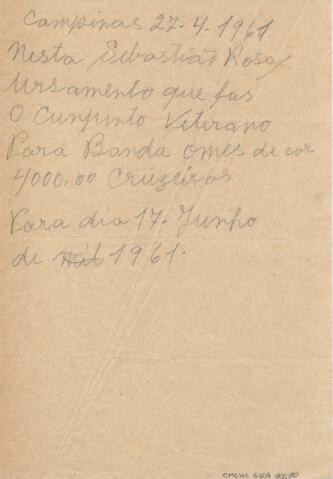 Campinas 27-4-1961
Nesta Sebastião Rosa
Ursamento que fas
O Cunjunto Viterano
Para Banda omes de cor
4000.00 Cruzeiros
Para dia 17. Junho
de mil 1961.